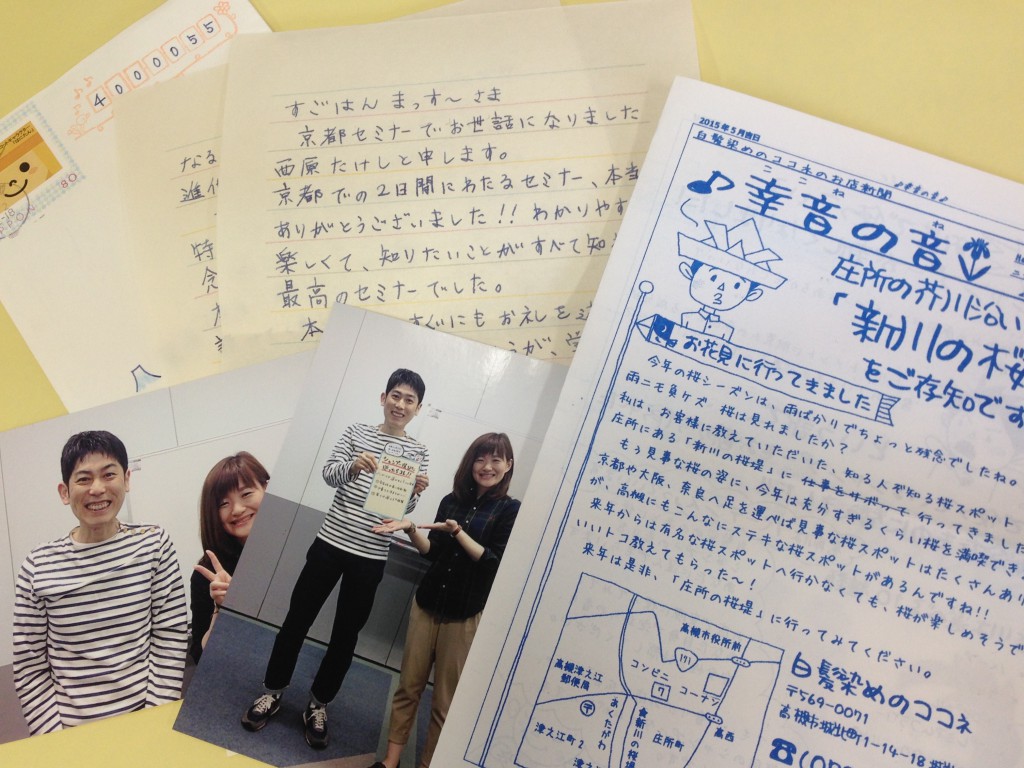 4000055
80
なる
進化
特
念
すごはん まっす〜さま
京都セミナーでお世話になりました
西原たけしと申します。
京都での2日間にわたるセミナー、本当
ありがとうございました!! わかりやす
楽しくて、知りたいことがすべて知
最高のセミナーでした。
すぐにもお礼を
2015年5月吉日
白髪染めのココネのお店新聞
♪幸音の音
ここね
ね
庄所の芥川沿い
「新川の桜
をご存知です
お花見に行ってきました
今年の桜シーズンは、雨ばかりでちょっと残念でしたね。
雨ニモ負ケズ 桜は見れましたか?
私は、お客様に教えていただいた、知る人ぞ知る桜スポット
庄所にある「新川の桜堤」に仕事をサボって行ってきました
もう見事な桜の姿に、今年は充分すぎるくらい桜を満喫でき
京都や大阪、奈良へ足を運べば見事な桜スポットはたくさんあり
が、高槻にもこんなにステキな桜スポットがあるんですね!!
来年からは有名な桜スポットへ行かなくても、桜が楽しめそうで
いいトコ教えてもらった〜!
来年は是非、「庄所の桜堤」に行ってみてください。
高槻市役所前
171
コンビニ
7
コーナン
高槻津之江
郵便局
〒
あくたがわ
★新川の桜堤
庄所町
高西
津之江町2
白髪染めのココネ
〒569-0071
高槻市城北町1-14-18
☎(072